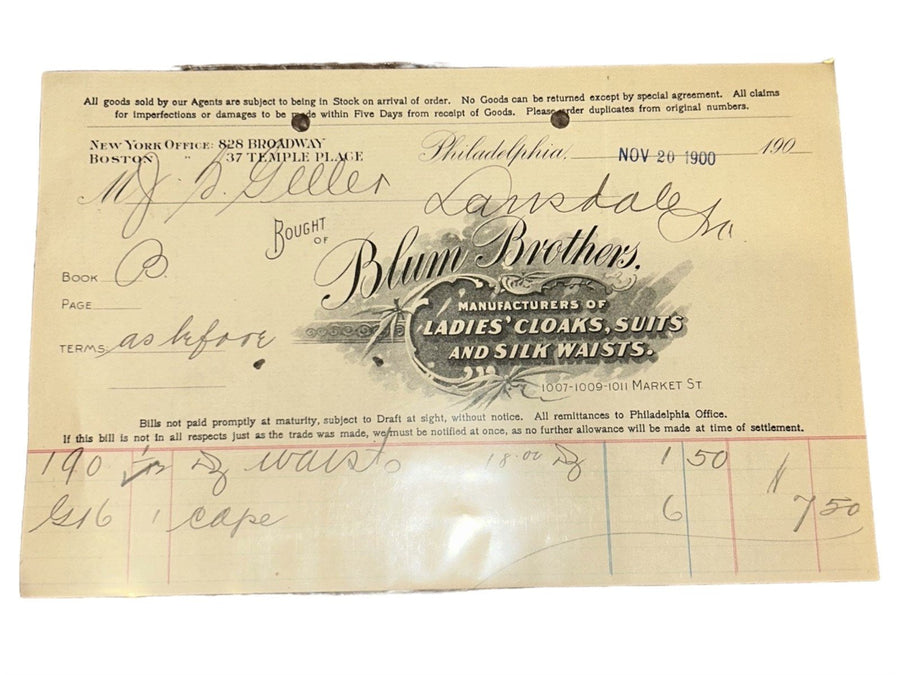 All goods sold by our Agents are subject to being in Stock on arrival of order. No Goods can be returned except by special agreement. All claims
for imperfections or damages to be made within Five Days from receipt of Goods. Please order duplicates from original numbers.
NEW YORK OFFICE: 828 BROADWAY
BOSTON " 37 TEMPLE PLACE
Philadelphia, NOV 20 1900 190
M J. S. Geller Lansdale Pa
BOUGHT OF
Blum Brothers.
BOOK B
PAGE
MANUFACTURERS OF
LADIES' CLOAKS, SUITS
AND SILK WAISTS.
TERMS: as before
1007-1009-1011 MARKET ST.
Bills not paid promptly at maturity, subject to Draft at sight, without notice. All remittances to Philadelphia Office.
If this bill is not in all respects just as the trade was made, we must be notified at once, as no further allowance will be made at time of settlement.
190 1/12 Dz waists 18.00 Dz 1 50
G16 1 cape 6 7 50